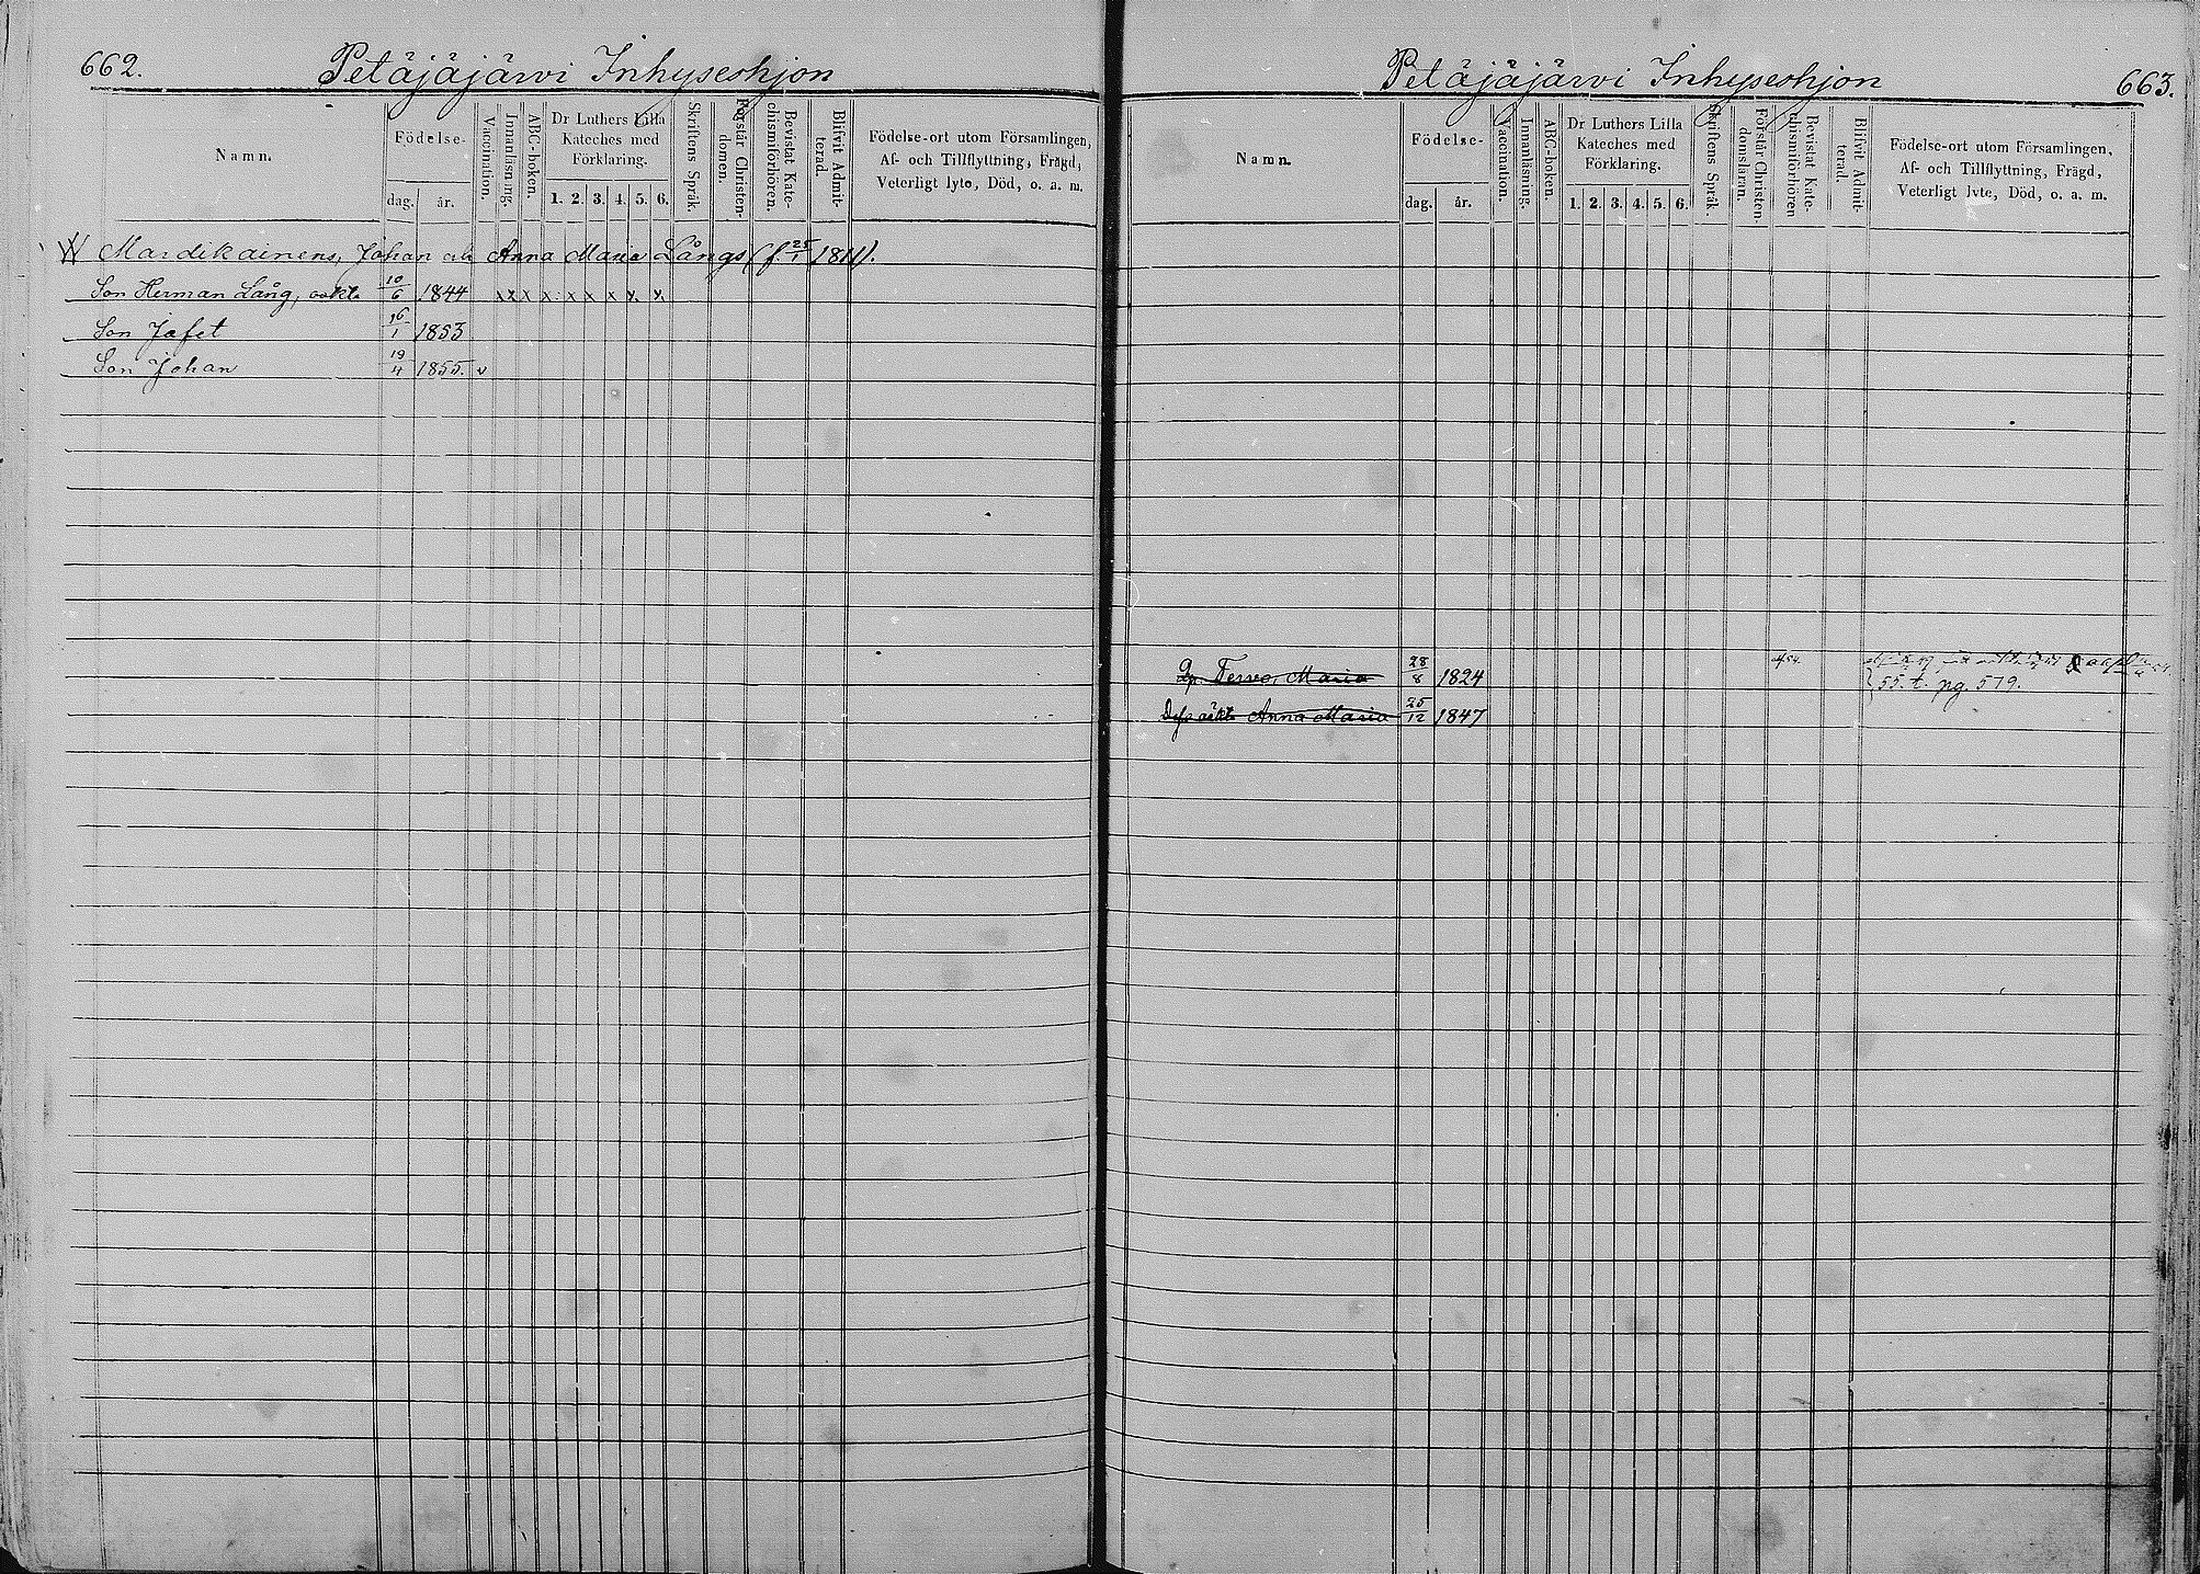 662.
Petäjäjärvi Inhyseshjon
Namn.
Födelse-
dag.
år.
Vaccination.
Innanläsning.
ABC-boken.
Dr Luthers Lilla
Kateches med
Förklaring.
1. 2. 3. 4. 5. 6.
Skriftens Språk.
Förstår Christen-
domen.
Bevistat Kate-
chismiförhören.
Blifvit Admit-
terad.
Födelse-ort utom Församlingen,
Af- och Tillflyttning, Frägd,
Veterligt lyte, Död, o. a. m.
Mardikainens, Johan och Anna Maria Långs (f. 25/1 1811).
Son Herman Lång, 10/6 1844 x x x x x x x x x
Son Jafet 16/1 1853
Son Johan 19/4 1855. v
Petäjäjärvi Inhyseshjon
663.
Namn.
Födelse-
dag.
år.
Vaccination.
Innanläsning.
ABC-boken.
Dr Luthers Lilla
Kateches med
Förklaring.
1. 2. 3. 4. 5. 6.
Skriftens Språk.
Förstår Christen-
domsläran.
Bevistat Kate-
chismiförhören
Blifvit Admit-
terad.
Födelse-ort utom Församlingen,
Af- och Tillflyttning, Frägd,
Veterligt lyte, Död, o. a. m.
Tervo, Maria 28/8 1824
55. t. pg. 579.
Anna Maria 25/12 1847